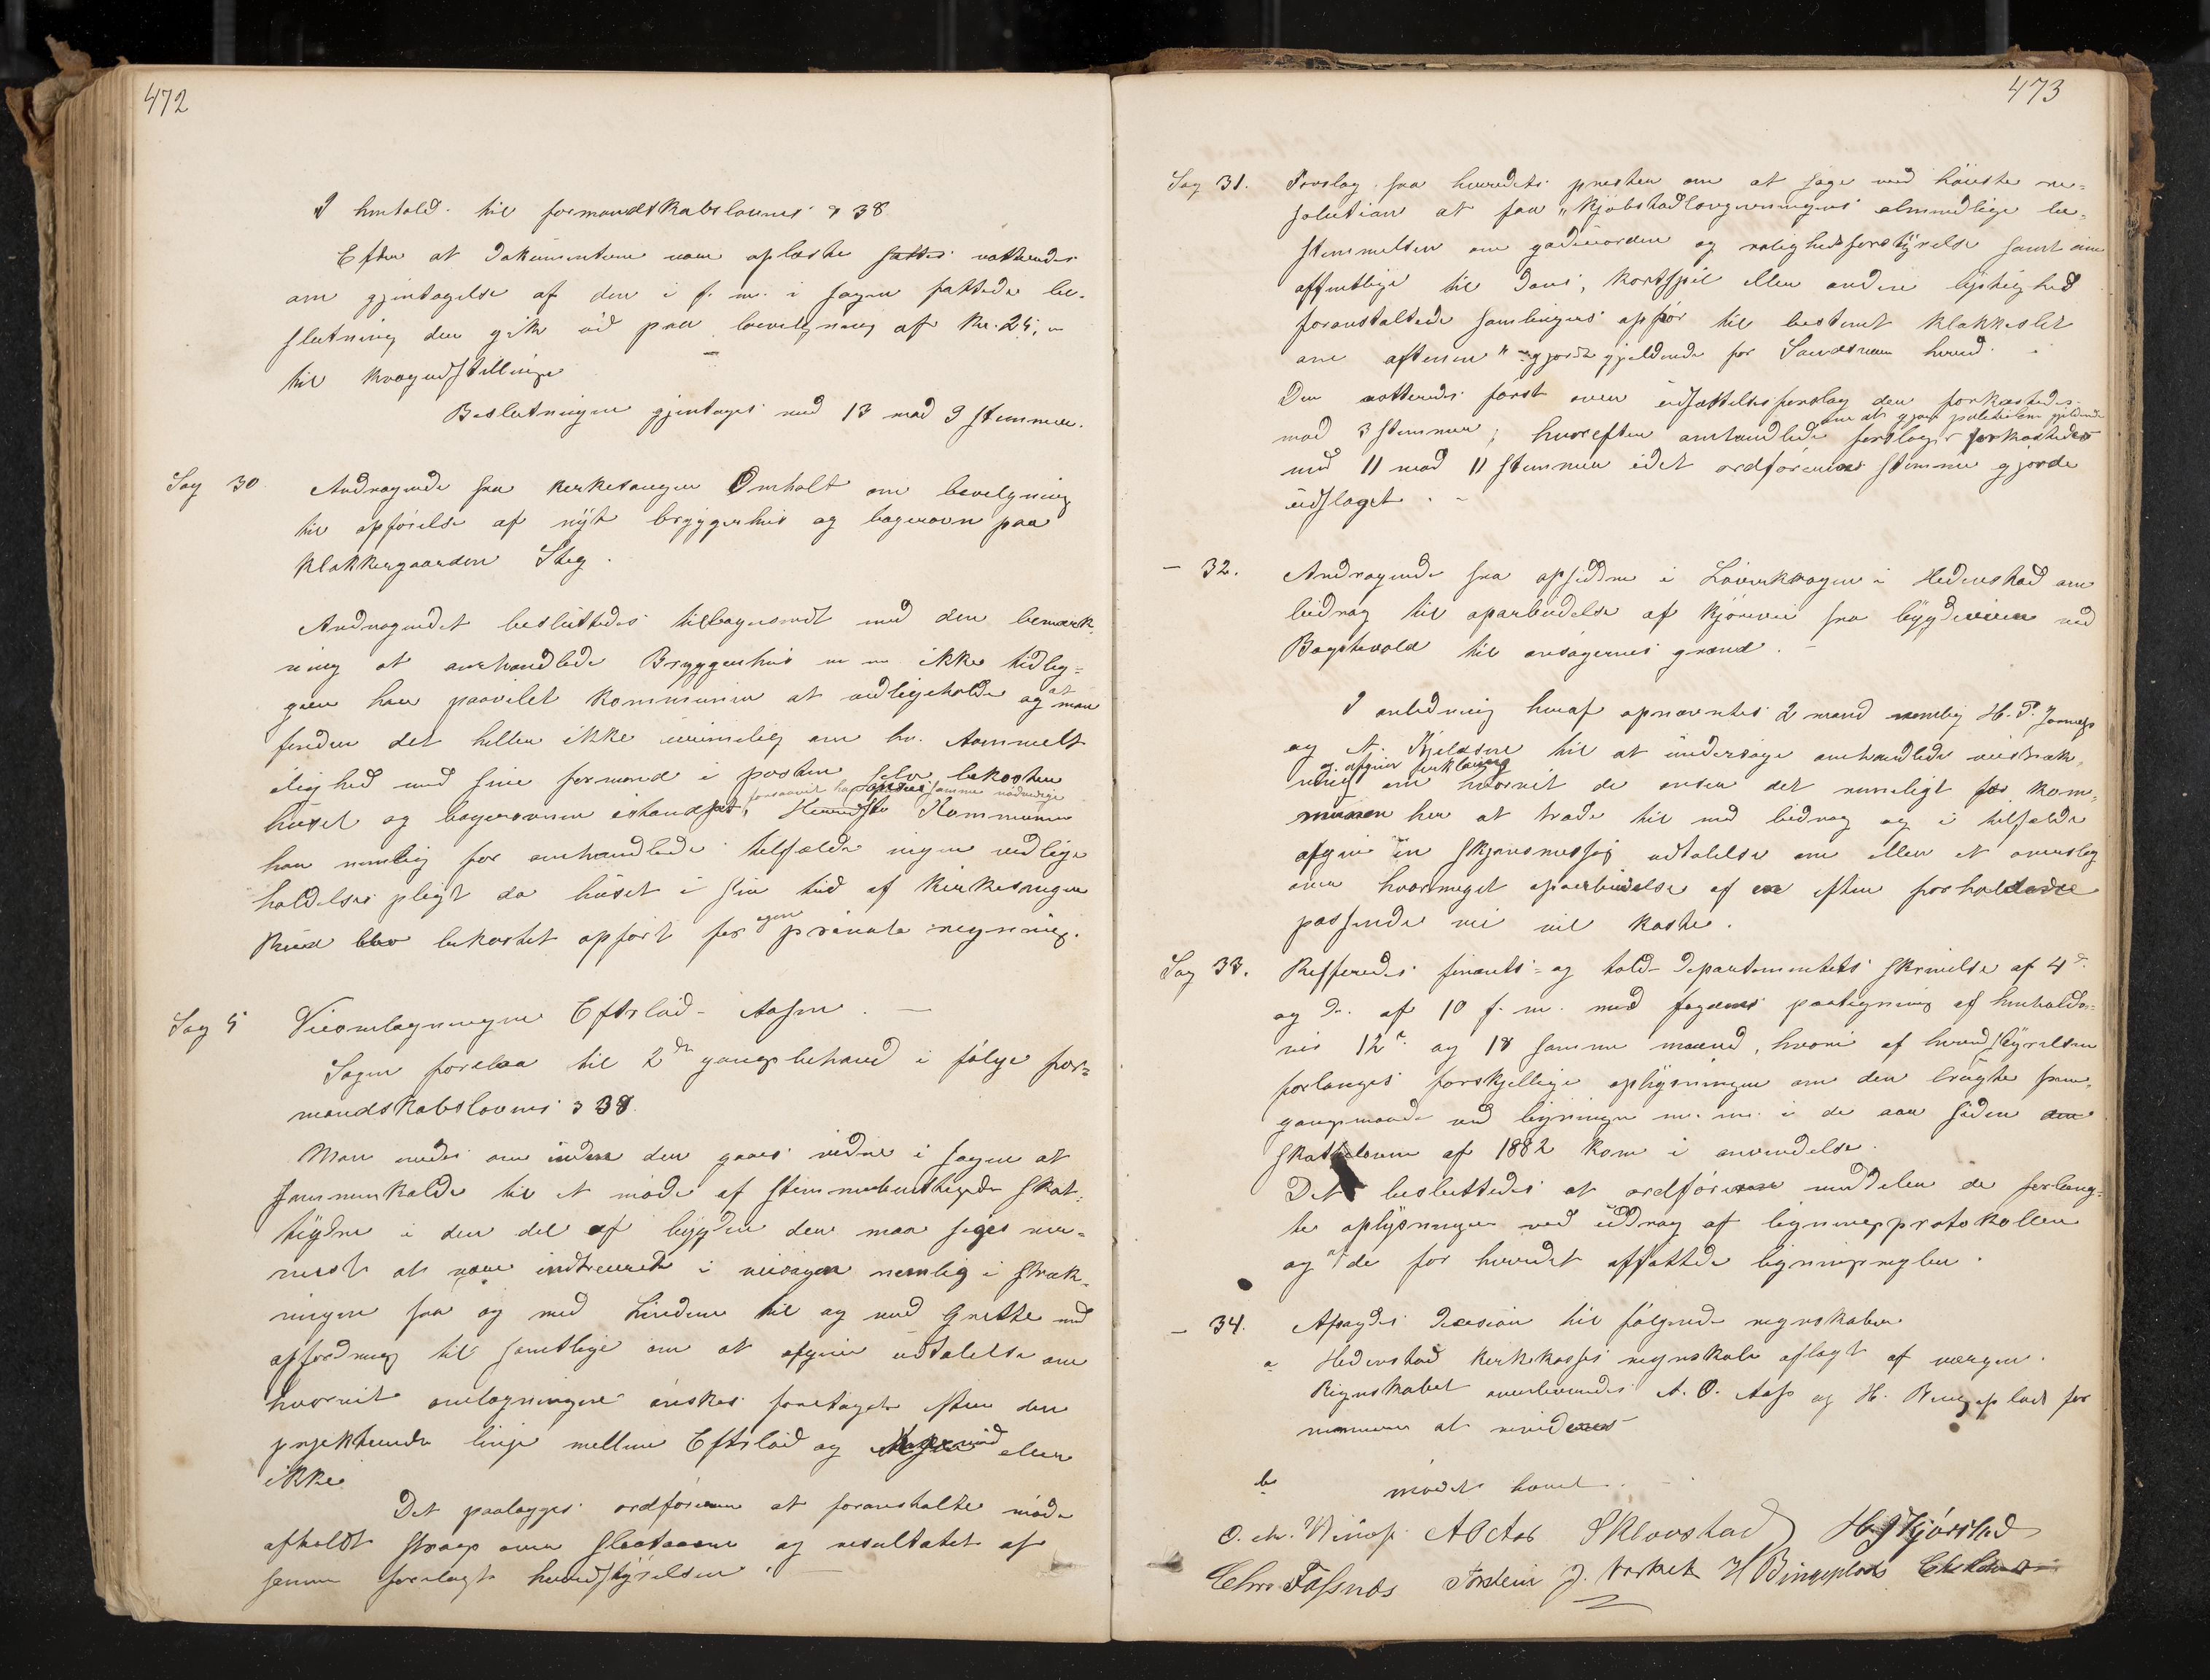 472
I henhold til formandskabslovens § 38
Efter at Dokumenterne vare oplæste sattes votteredes
om gjentagelse af den i f. m. i sagen fattede be-
slutning der gik ud paa bevilgning af Kr. 25,
til kvægudstillinge
Beslutningen gjentoges med 13 mod 9 stemmer.
Sag 30 Andragende fra kirkesanger Omholt om bevilgning
til opførelse af nyt bryggerhus og bagerovn paa
Klokkergaarden Steg.
Andragendet besluttedes tilbagesendt med den bemærk-
ning at omhandlede Bryggerhus m m ikke tidlig-
gere har paavilet kommunen at vedligeholde og at man
finder det heller ikke urimelig om hr.
lighed med sine formænd i posten selv bekoster
huset og bagerovnen istandsat, Kommunen
har nemlig for omhandlede tilfælde ingen vedlige
holdelses pligt da huset i sin tid af kirkesanger
Ruud blev bekostet opført for egen private regning.
Sag 5 Veiomlægningen Eftelød - Aasen. —
Sagen forelaa til 2den gangs behand i følge for-
mandskabslovens § 38.
Man enedes om inden der gaaes videre i sagen at
sammenkalde til et møde af stemmeberettigede skat-
tydere i den del af bygden der maa siges nær-
mest at være indtreseret i veisagen nemlig i stræk-
ningen fra og med Lindem til og med Grette med
opfordring til samtlige om at afgive udtalelse om
hvorvidt omlægningen ønskes foretaget efter den
projekterede linje mellem Efteløð og eller
ikke.
Det paalægges ordføreren at foranstalte møde
afholdt strax over og resultatet af
samme forelagt heredsstyrelsen. —
473
Sag 31. Forslag fra heredets prester om at søge ved høieste re-
solution at faa "Kjøbstadlovgivningens almindelige be-
stemmelser om gadeuorden og rolighedsforstyrelse samt om
offentlige til dans, kortspil eller anden lystighed
foranstaltede samlingers ophør til bestemt klokkeslet
om aftenen" gjort gjeldende for Sandsvær hered. —
Der votteredes først over udsættelsesforslag der forkastedes
om at gjøre gjeldende
mod 3 stemmer; hvorefter omhandlede forslag forkastedes
med 11 mod 11 stemmer idet ordførerens stemme gjorde
udslaget. —
— 32. Andragende fra opsiddere i Løverkrogen i Hedenstad om
bidrag til oparbeidelse af kjørevei fra bygdeveien ved
Bogstevold til ansøgernes grænd. —
I anledning heraf opnævntes 2 mænd nemlig H. P.
og A. Kjeldsen til at undersøge omhandlede veistræk-
og afgive erklæring
ning om hvorvidt de anser det rimeligt for kom-
munen her at træde til med bidrag og i tilfælde
afgive en skjønsmessig udtalelse om eller et overslag
over hvormeget oparbeidelse af en efter forholdene
passende vei vil koste.
Sag 33. Refferedes finants- og told-Departementets skrivelse af 4de
og Do. af 10 f. m. med fogdens paategning af henholds-
vis 12te og 18 samme maaned, hvori af heredstyrelsen
forlanges forskjellige oplysninger om den brugte frem-
gangsmaade ved ligningen m. m. i de aar siden
skatteloven af 1882 kom i anvendelse.
Det besluttedes at ordføreren meddeler de forlang-
te oplysninger ved uddrag af ligningsprotokollen
og af de for heredet affattede ligningsregler.
— 34. Afsagdes Decision til følgende regnskaber
a Hedenstad kirkekasses regnskab aflagt af værgen.
Regnskabet overleveredes A. O. Aas og H. Bingeplads for
nærmere at revideres
b
mødet hævet. —
O. Chr. A O Aas S Klovstad H. J Kjørstad
Chr. Fossnæs Torstein J. H Bingeplads